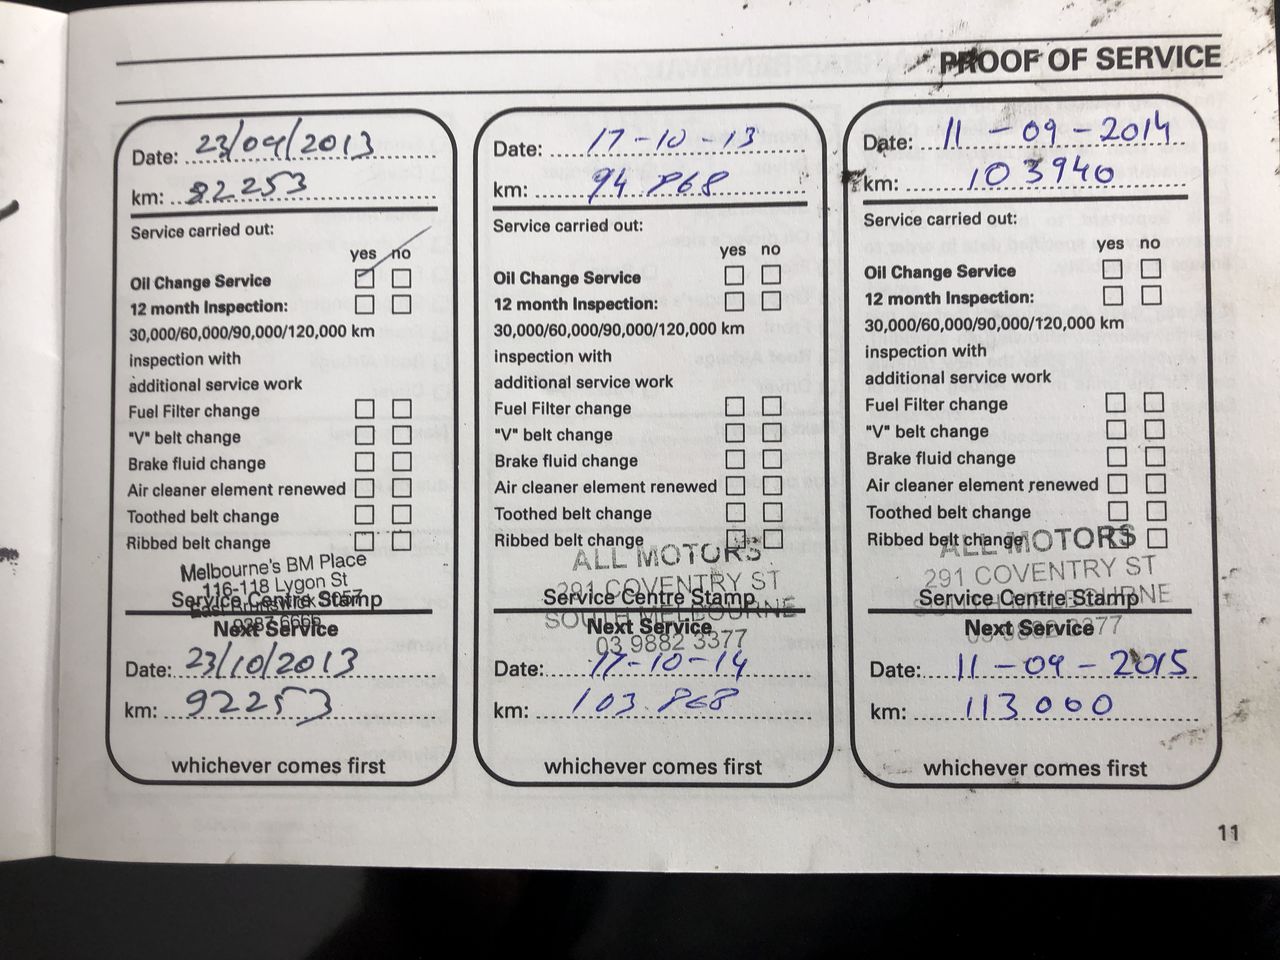 PROOF OF SERVICE
Date: 23/04/2013
km: 82253
Service carried out:
yes no
Oil Change Service
12 month Inspection:
30,000/60,000/90,000/120,000 km
inspection with
additional service work
Fuel Filter change
"V" belt change
Brake fluid change
Air cleaner element renewed
Toothed belt change
Ribbed belt change
Melbourne's BM Place
116-118 Lygon St
Service Centre Stamp
East Brunswick 3057
9387 6666
Next Service
Date: 23/10/2013
km: 92253
whichever comes first
Date: 17-10-13
km: 94.868
Service carried out:
yes no
Oil Change Service
12 month Inspection:
30,000/60,000/90,000/120,000 km
inspection with
additional service work
Fuel Filter change
"V" belt change
Brake fluid change
Air cleaner element renewed
Toothed belt change
Ribbed belt change
ALL MOTORS
291 COVENTRY ST
Service Centre Stamp
SOUTH MELBOURNE
Next Service
03 9882 3377
Date: 17-10-14
km: 103.868
whichever comes first
Date: 11-09-2014
km: 103940
Service carried out:
yes no
Oil Change Service
12 month Inspection:
30,000/60,000/90,000/120,000 km
inspection with
additional service work
Fuel Filter change
"V" belt change
Brake fluid change
Air cleaner element renewed
Toothed belt change
Ribbed belt change
ALL MOTORS
291 COVENTRY ST
Service Centre Stamp
SOUTH MELBOURNE
Next Service
03 9882 3377
Date: 11-09-2015
km: 113000
whichever comes first
11